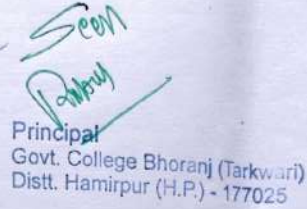 Seen
Principal
Govt. College Bhoranj (Tarkwari)
Distt. Hamirpur (H.P.) - 177025